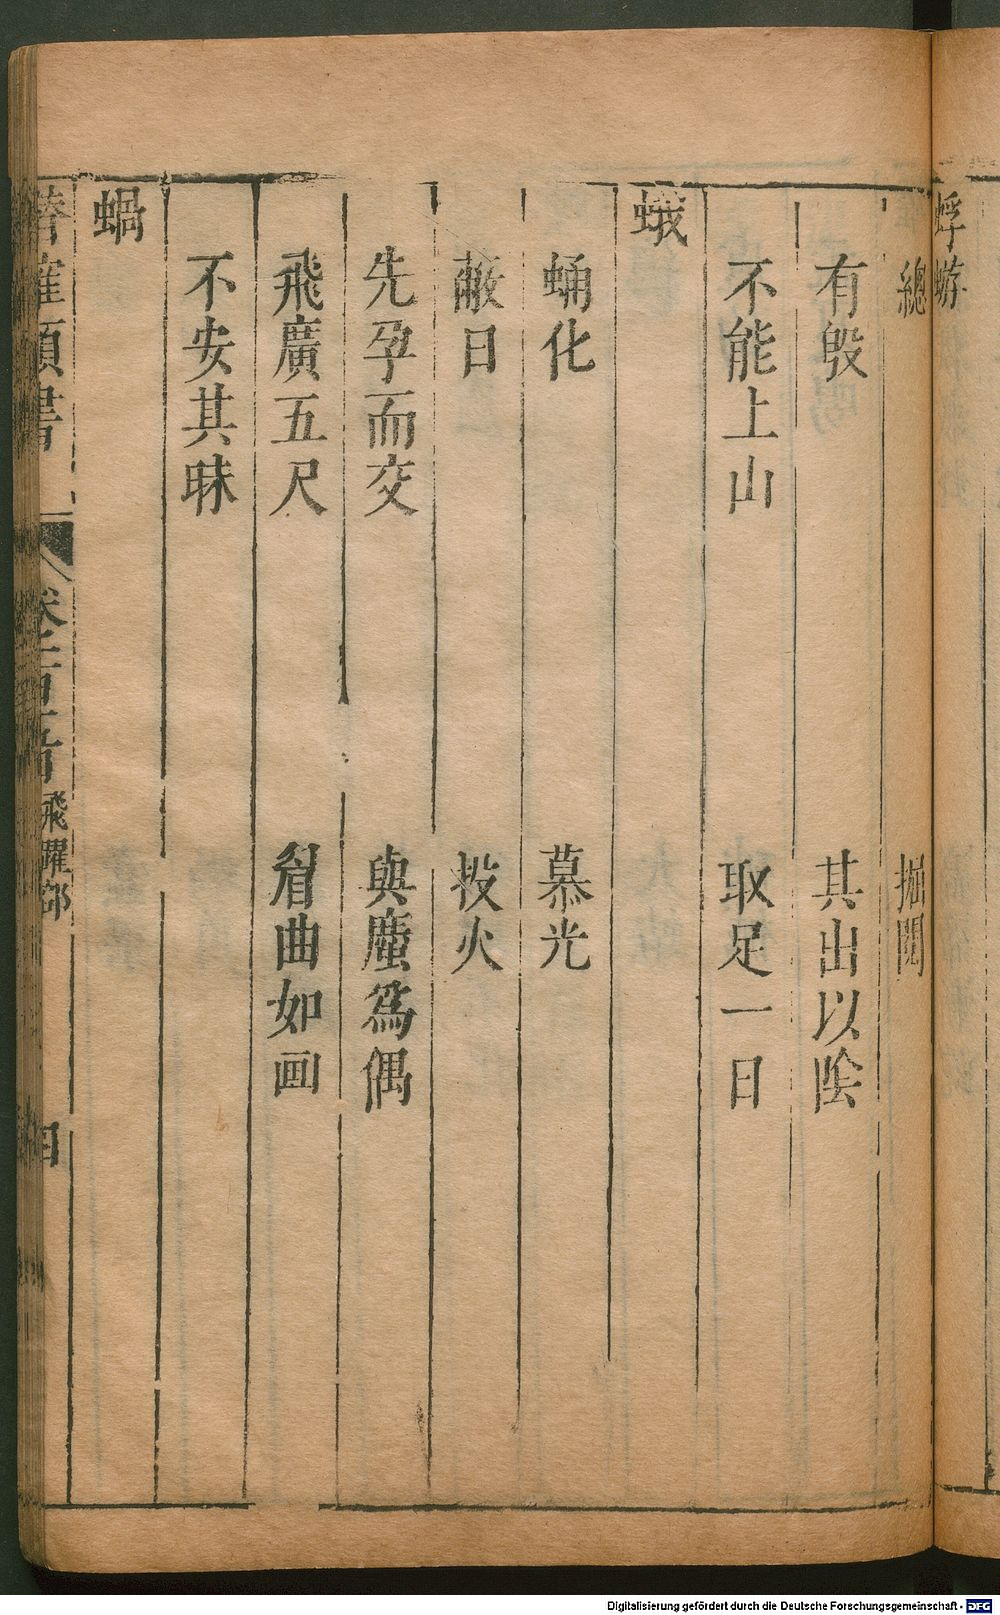 蜉蝣
總 掘閱
有殼 其出以陰
不能上山 取足一日
蛾
蛹化 慕光
蔽日 投火
先孕而交 與蠶為偶
飛廣五尺 眉曲如画
不安其昧
蝸
飛躍部
Digitalisierung gefördert durch die Deutsche Forschungsgemeinschaft - DFG